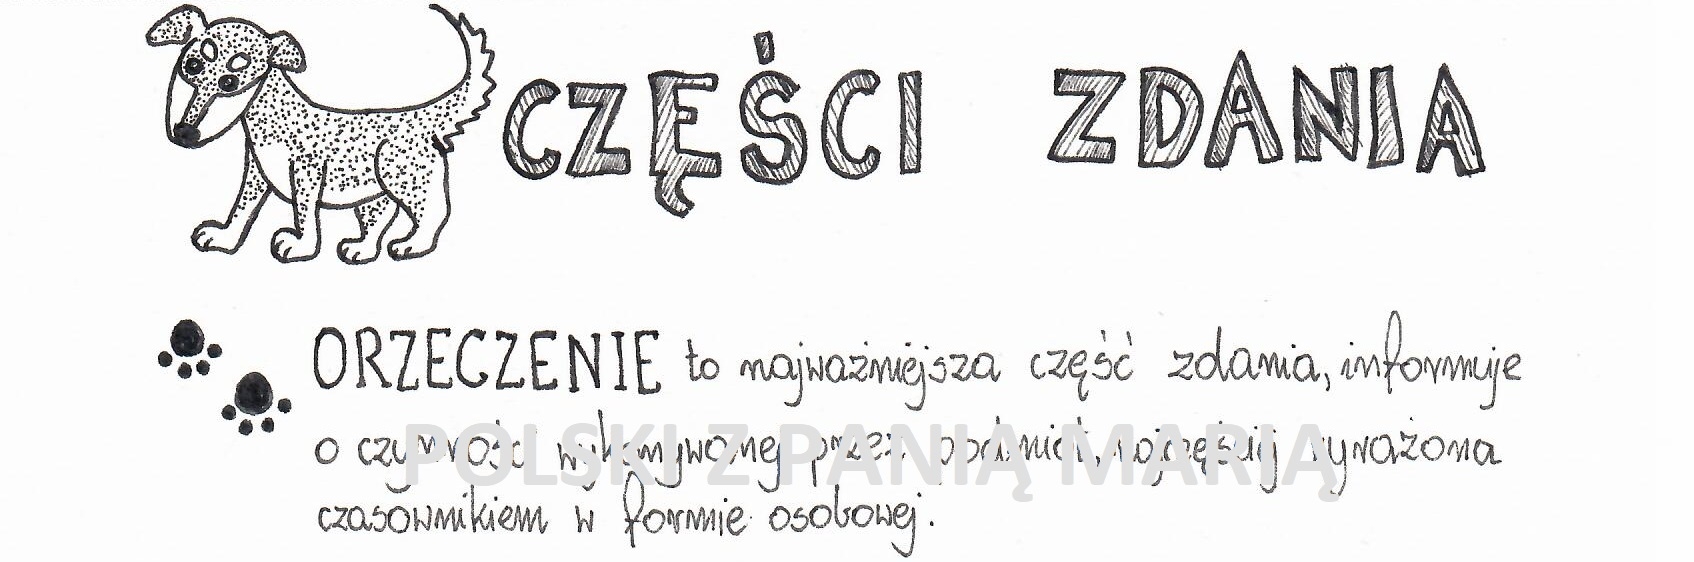 CZĘŚCI ZDANIA
ORZECZENIE to najważniejsza część zdania, informuje
o czynności wykonywanej przez podmiot, najczęściej wyrażona
POLSKI Z PANIĄ MARIĄ
czasownikiem w formie osobowej.